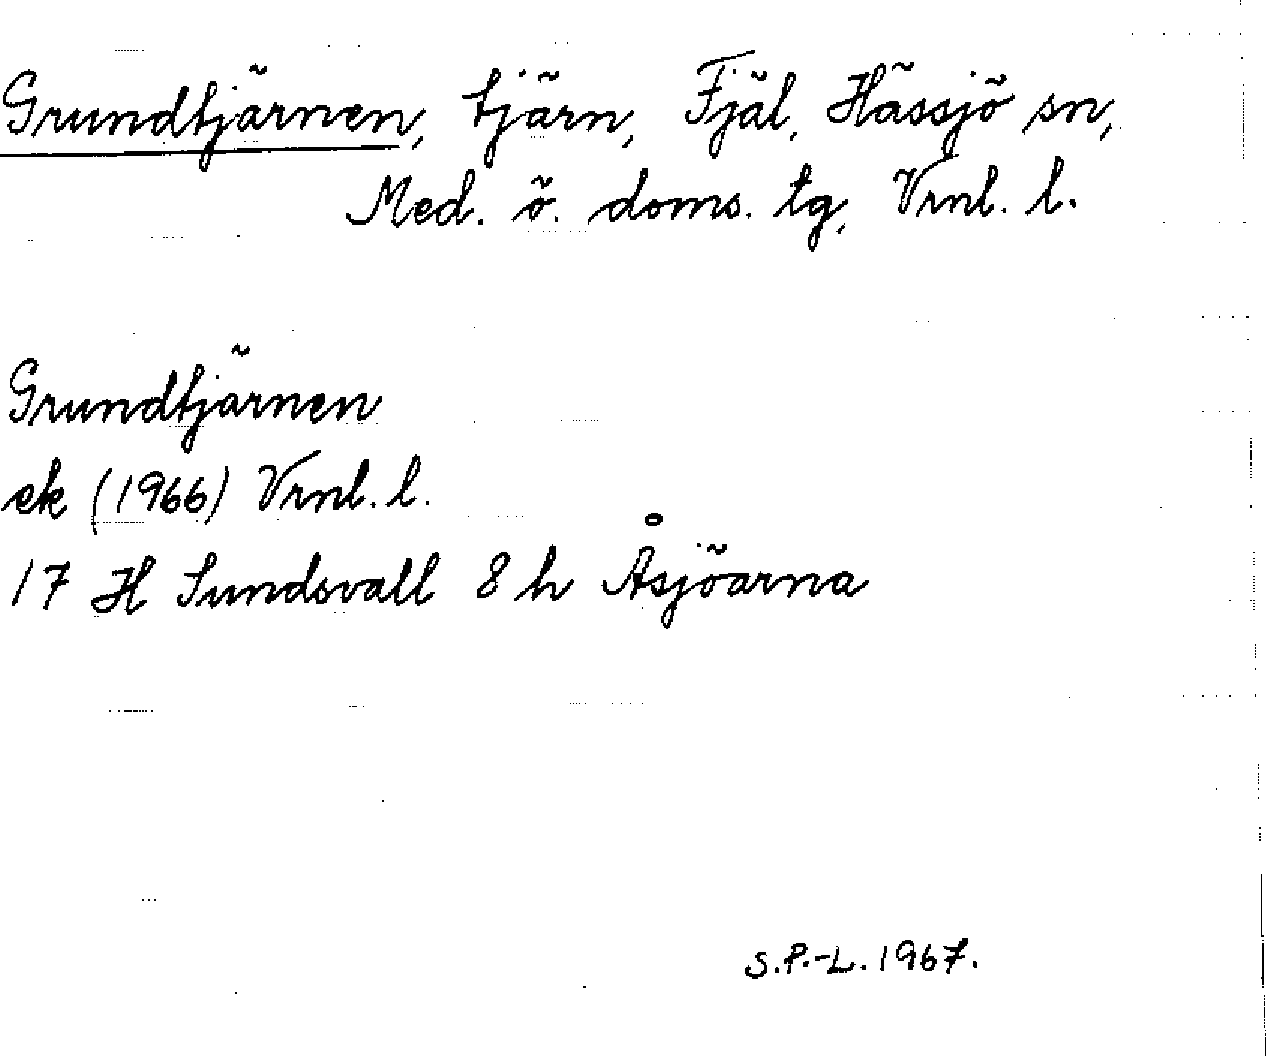 Grundtjärnen, tjärn, Fjäl, Hässjö sn,
Med. ö. doms. tg, Vrnl. l.
Grundtjärnen
ek (1966) Vrnl. l.
17 H Sundsvall 8 h Åsjöarna
S.P.-L. 1967.